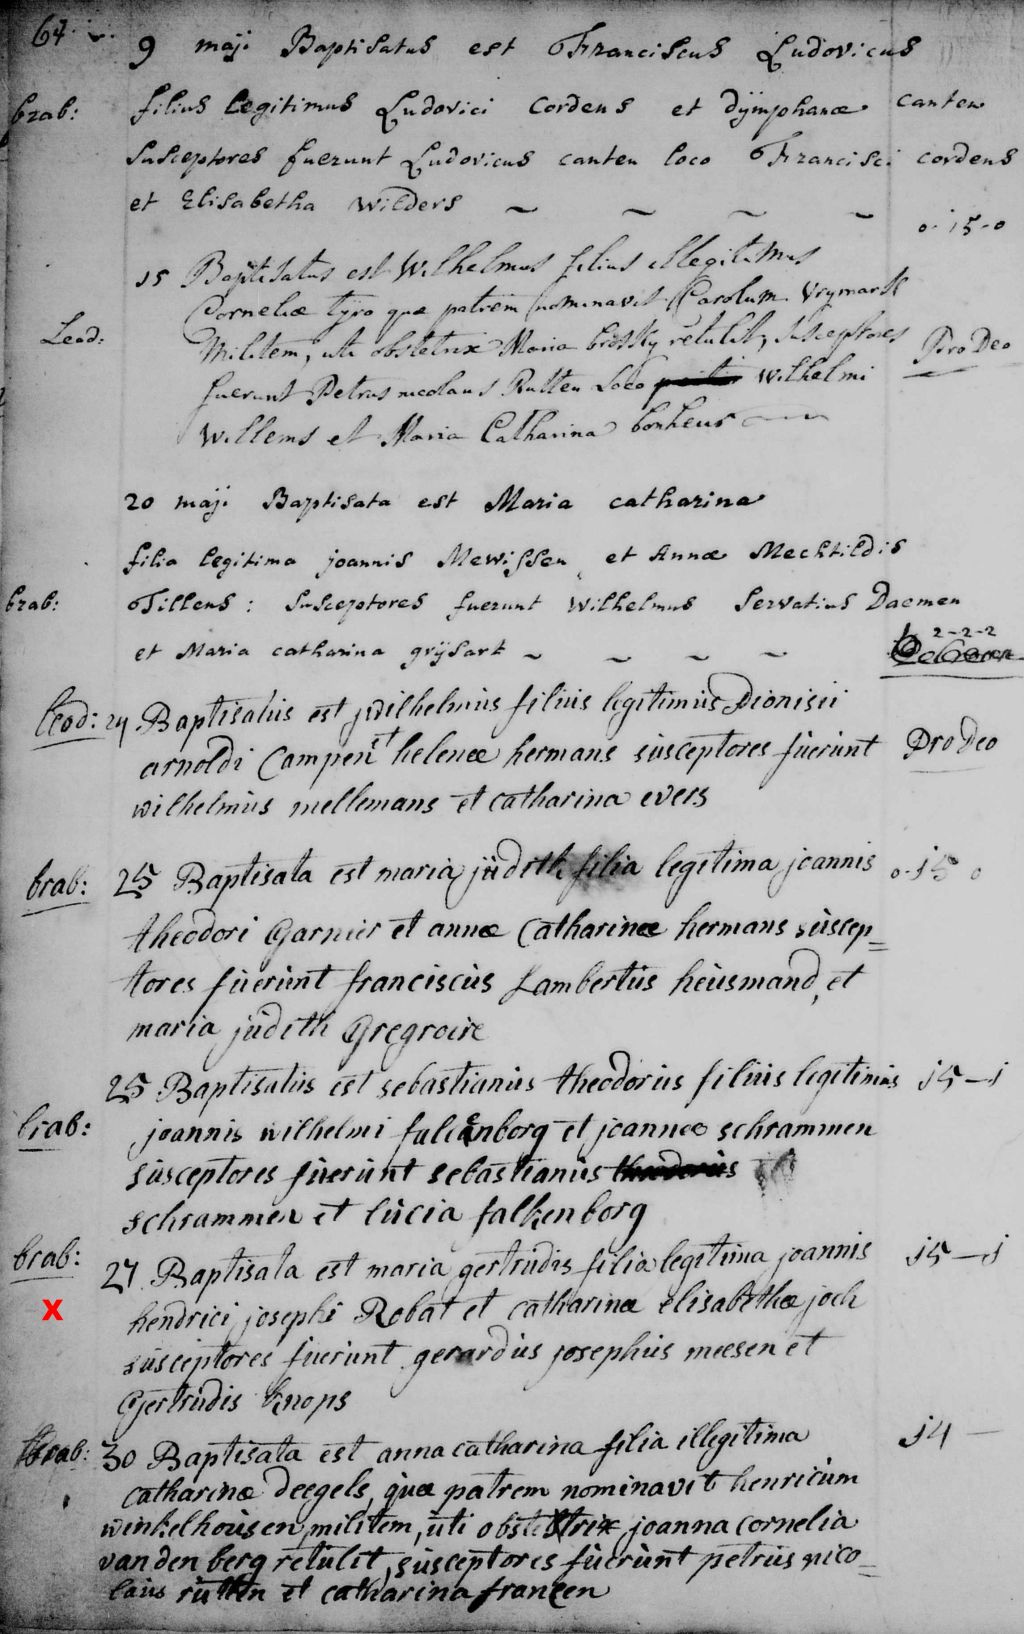 64.
9 maji Baptisatus est Franciscus Ludovicus
brab: filius legitimus Ludovici Cordens et dijmphanæ canten
susceptores fuerunt Ludovicus canten loco Francisci cordens
et Elisabetha Wilders ~ ~ ~ ~
0-15-0
15 Baptisatus est Wilhelmus filius illegitimus
Corneliæ tyro quæ patrem nominavit Carolum Vrymark
Leod: Militem, uti obstetrix Maria retulit, susceptores Pro Deo
fuerunt Petrus nicolaus Rutten Loco Wilhelmi
Willems et Maria Catharina bonheur
20 maji Baptisata est Maria catharina
filia legitima joannis Mewissen et Annæ Mechtildis
brab: Tillens: susceptores fuerunt Wilhelmus Servatius Daemen
et Maria catharina grijsart ~ ~ ~ ~ 2-2-2
leod: 24 Baptisatus est wilhelmus filius legitimus Dionisii
arnoldi Campen et helenæ hermans susceptores fuerunt Pro Deo
wilhelmus mellemans et catharina evers
brab: 25 Baptisata est maria judith filia legitima joannis 0-15 0
theodori Garnier et annæ Catharinæ hermans suscep=
tores fuerunt franciscus Lambertus heusmand, et
maria judith Gregroire
25 Baptisatus est sebastianus theodorus filius legitimus 15-1
brab: joannis wilhelmi falcenborg et joannæ schrammen
susceptores fuerunt sebastianus theodorus
schrammen et lucia falkenborg
brab: 27 Baptisata est maria gertrudis filia legitima joannis 15-1
X hendrici josephi Robat et catharinæ elisabethæ joch
susceptores fuerunt gerardus josephus meesen et
Gertrudis knops
brab: 30 Baptisata est anna catharina filia illegitima 14-
catharinæ deegels, quæ patrem nominavit henricum
winkelhousen, militem, uti obstetrix joanna cornelia
van den berg retulit, susceptores fuerunt petrus nico=
laus rutten et catharina francen